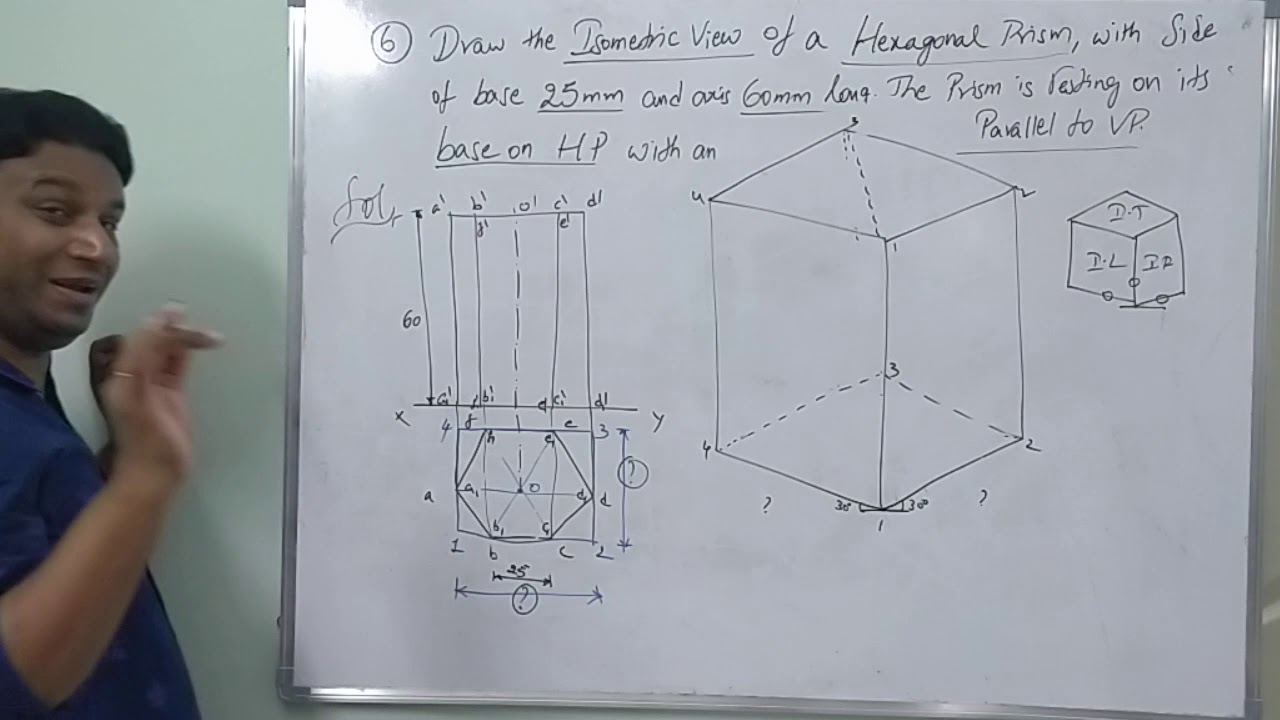 ⑥ Draw the Isometric View of a Hexagonal Prism, with Side
of base 25mm and axis 60mm long. The Prism is resting on its
base on HP with an
Parallel to VP.
Sol,
a' b' o' c' d'
f' e'
60
X Y
4 f e 3
a a₁ o d₁ d
b₁ c₁
1 b c 2
25
?
?
3
4 2
1
3
4 2
30° 30°
1
? ?
I.T
I.L I.R